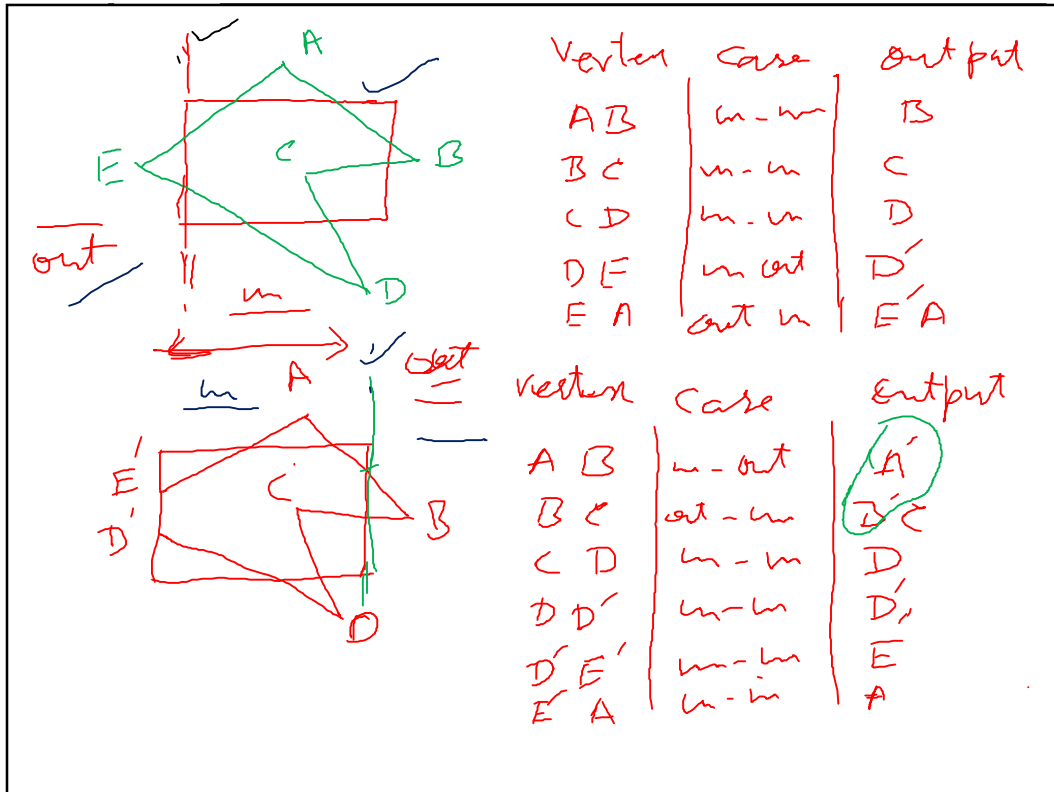 A
E
C
B
out
in
D
Vertex Case Output
A B in - in B
B C in - in C
C D in - in D
D E in out D'
E A out in E'A
in
A
out
E'
D'
C
B
D
Vertex Case Output
A B in - out A'
B C out - in B'C
C D in - in D
D D' in - in D'
D' E' in - in E
E' A in - in A